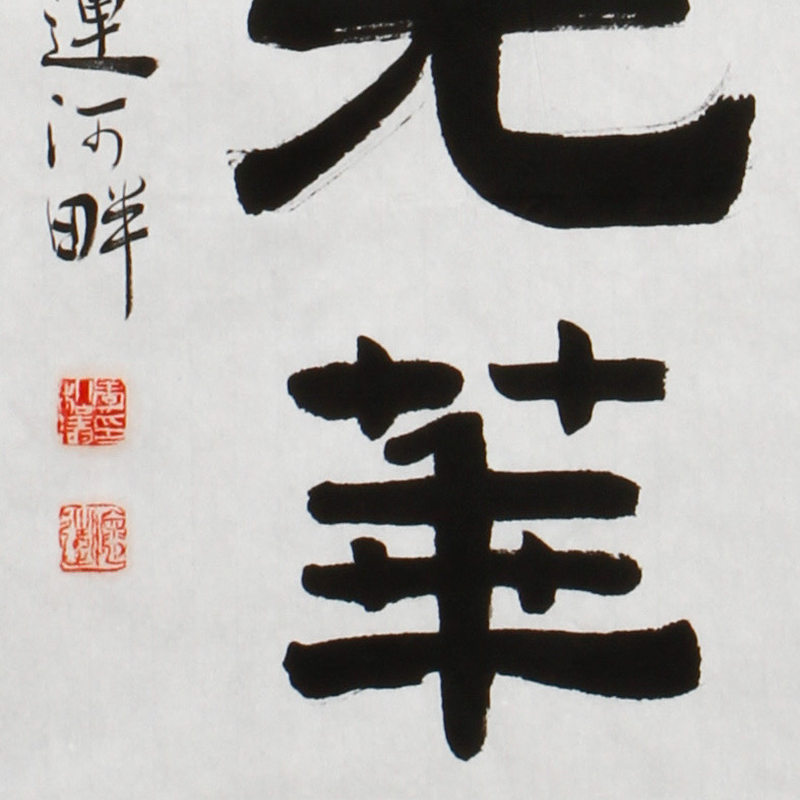 光華
運河畔